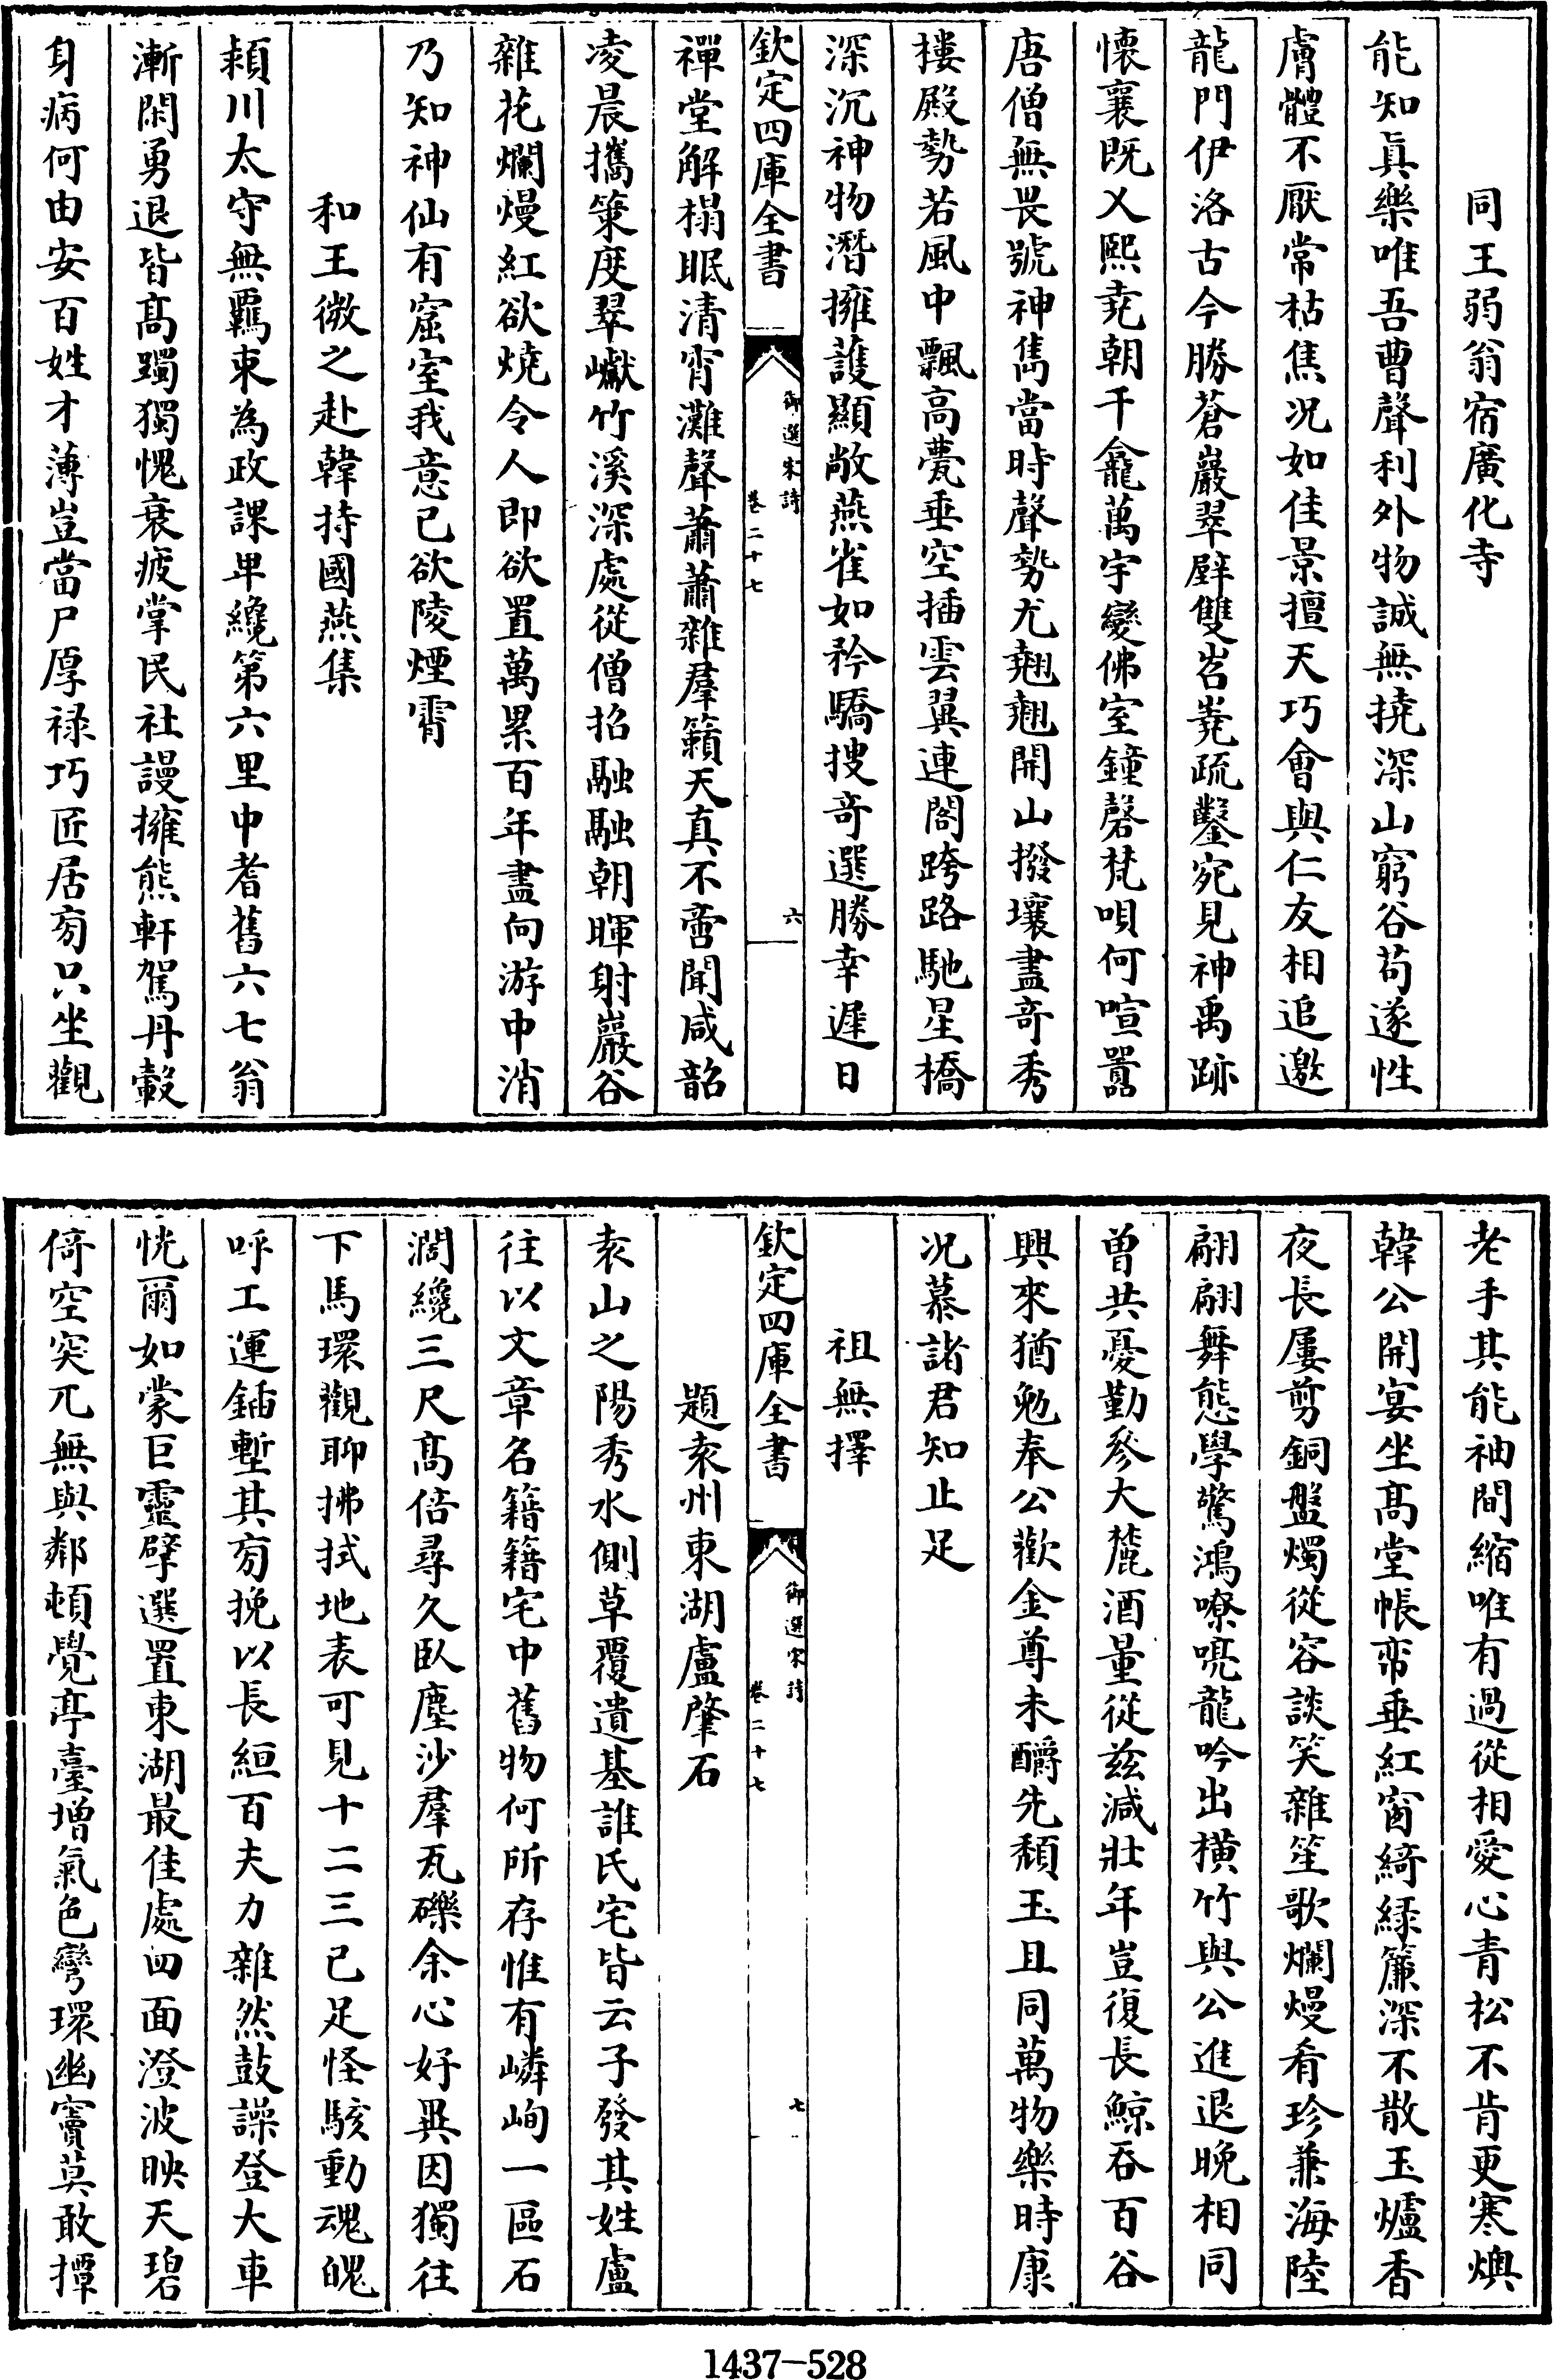 同王弱翁宿廣化寺
能知真樂唯吾曹聲利外物誠無撓深山窮谷茍遂性
膚體不厭常枯焦况如佳景擅天巧會與仁友相追邀
龍門伊洛古今勝蒼巖翠壁雙岧嶤疏鑿宛見神禹跡
懷襄既乂熙堯朝千龕萬宇變佛室鐘磬梵唄何喧囂
唐僧無畏號神雋當時聲勢尤翹翹開山撥壤盡奇秀
樓殿勢若風中飄高甍垂空插雲翼連閣跨路馳星橋
深沉神物潛擁護顯敞燕雀如矜驕搜奇選勝幸遲日
欽定四庫全書
御選宋詩
卷二十七
六
禪堂解榻眠清宵灘聲蕭蕭雜羣籟天真不啻聞咸韶
凌晨攜筞度翠巘竹溪深處從僧招融融朝暉射巖谷
雜花爛熳紅欲燒令人即欲置萬累百年盡向游中消
乃知神仙有窟室我意已欲陵煙霄
和王微之赴韓持國燕集
潁川太守無羈束為政課卑纔第六里中耆舊六七翁
漸閑勇退皆高躅獨愧衰疲掌民社謾擁熊軒駕丹轂
身病何由安百姓才薄豈當尸厚禄巧匠居旁只坐觀
老手其能袖間縮唯有過從相愛心青松不肯更寒燠
韓公開宴坐高堂帳帟垂紅窗綺緑簾深不散玉爐香
夜長屢剪銅盤燭從容談笑雜笙歌爛熳肴珍兼海陸
翩翩舞態學驚鴻嘹喨龍吟出横竹與公進退晚相同
曽共憂勤參大麓酒量從兹減壯年豈復長鯨吞百谷
興來猶勉奉公歡金尊未釂先頹玉且同萬物樂時康
况慕諸君知止足
祖無擇
欽定四庫全書
御選宋詩
卷二十七
七
題袁州東湖盧肇石
袁山之陽秀水側草覆遺基誰氏宅皆云子發其姓盧
往以文章名籍籍宅中舊物何所存惟有嶙峋一區石
濶纔三尺高倍尋久臥塵沙羣瓦礫余心好異因獨往
下馬環觀聊拂拭地表可見十二三已足怪駭動魂魄
呼工運鍤塹其旁挽以長絙百夫力雜然鼓譟登大車
恍爾如蒙巨靈擘選置東湖最佳處四面澄波映天碧
倚空突兀無與鄰頓覺亭臺增氣色彎環幽竇莫敢撢
1437-528